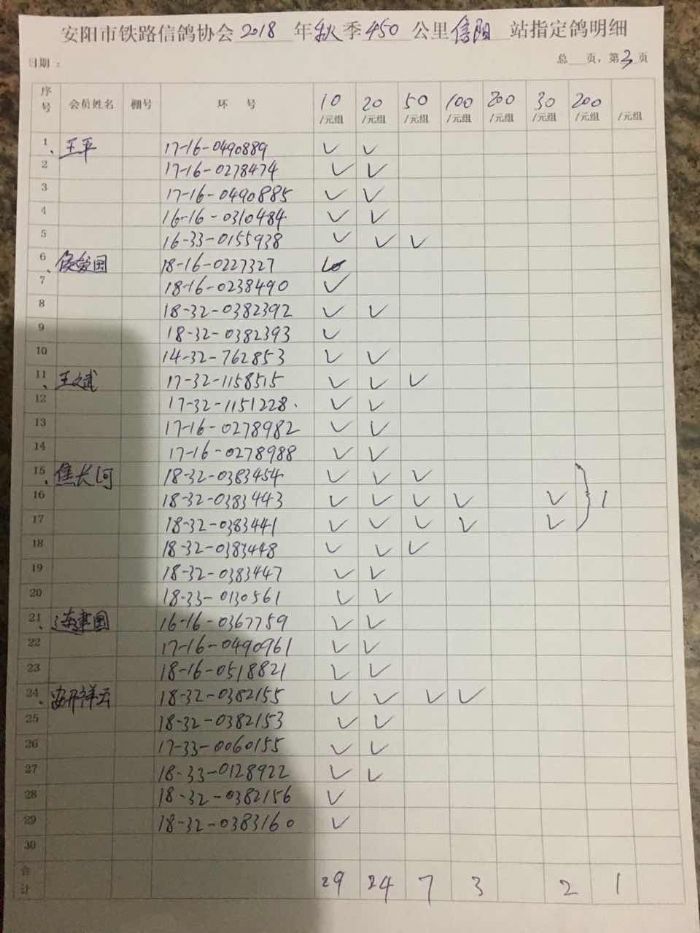 安阳市铁路信鸽协会 2018 年 秋 季 450 公里 信阳 站指定鸽明细
日期： 总 页，第 3 页
序号 会员姓名 棚号 环 号 10/元组 20/元组 50/元组 100/元组 200/元组 30/元组 200/元组 /元组
1 、王平 17-16-0490889 ✓ ✓
2 17-16-0278474 ✓ ✓
3 17-16-0490885 ✓ ✓
4 16-16-0310484 ✓ ✓
5 16-33-0155938 ✓ ✓ ✓
6 、国 18-16-0227327 ✓
7 18-16-0238490 ✓
8 18-32-0382392 ✓ ✓
9 18-32-0382393 ✓
10 14-32-762853 ✓ ✓
11 、王斌 17-32-1158515 ✓ ✓ ✓
12 17-32-1151228. ✓ ✓
13 17-16-0278982 ✓ ✓
14 17-16-0278988 ✓ ✓
15 、焦长河 18-32-0383454 ✓ ✓ ✓
16 18-32-0383443 ✓ ✓ ✓ ✓ ✓ } 1
17 18-32-0383441 ✓ ✓ ✓ ✓ ✓
18 18-32-0383448 ✓ ✓ ✓
19 18-32-0383447 ✓ ✓
20 18-33-0130561 ✓ ✓
21 、建国 16-16-0367759 ✓ ✓
22 17-16-0490961 ✓ ✓
23 18-16-0518821 ✓ ✓
24 、祥云 18-32-0382155 ✓ ✓ ✓ ✓
25 18-32-0382153 ✓ ✓
26 17-33-0060155 ✓ ✓
27 18-33-0128922 ✓ ✓
28 18-32-0382156 ✓
29 18-32-0383160 ✓
30
合计 29 24 7 3 2 1